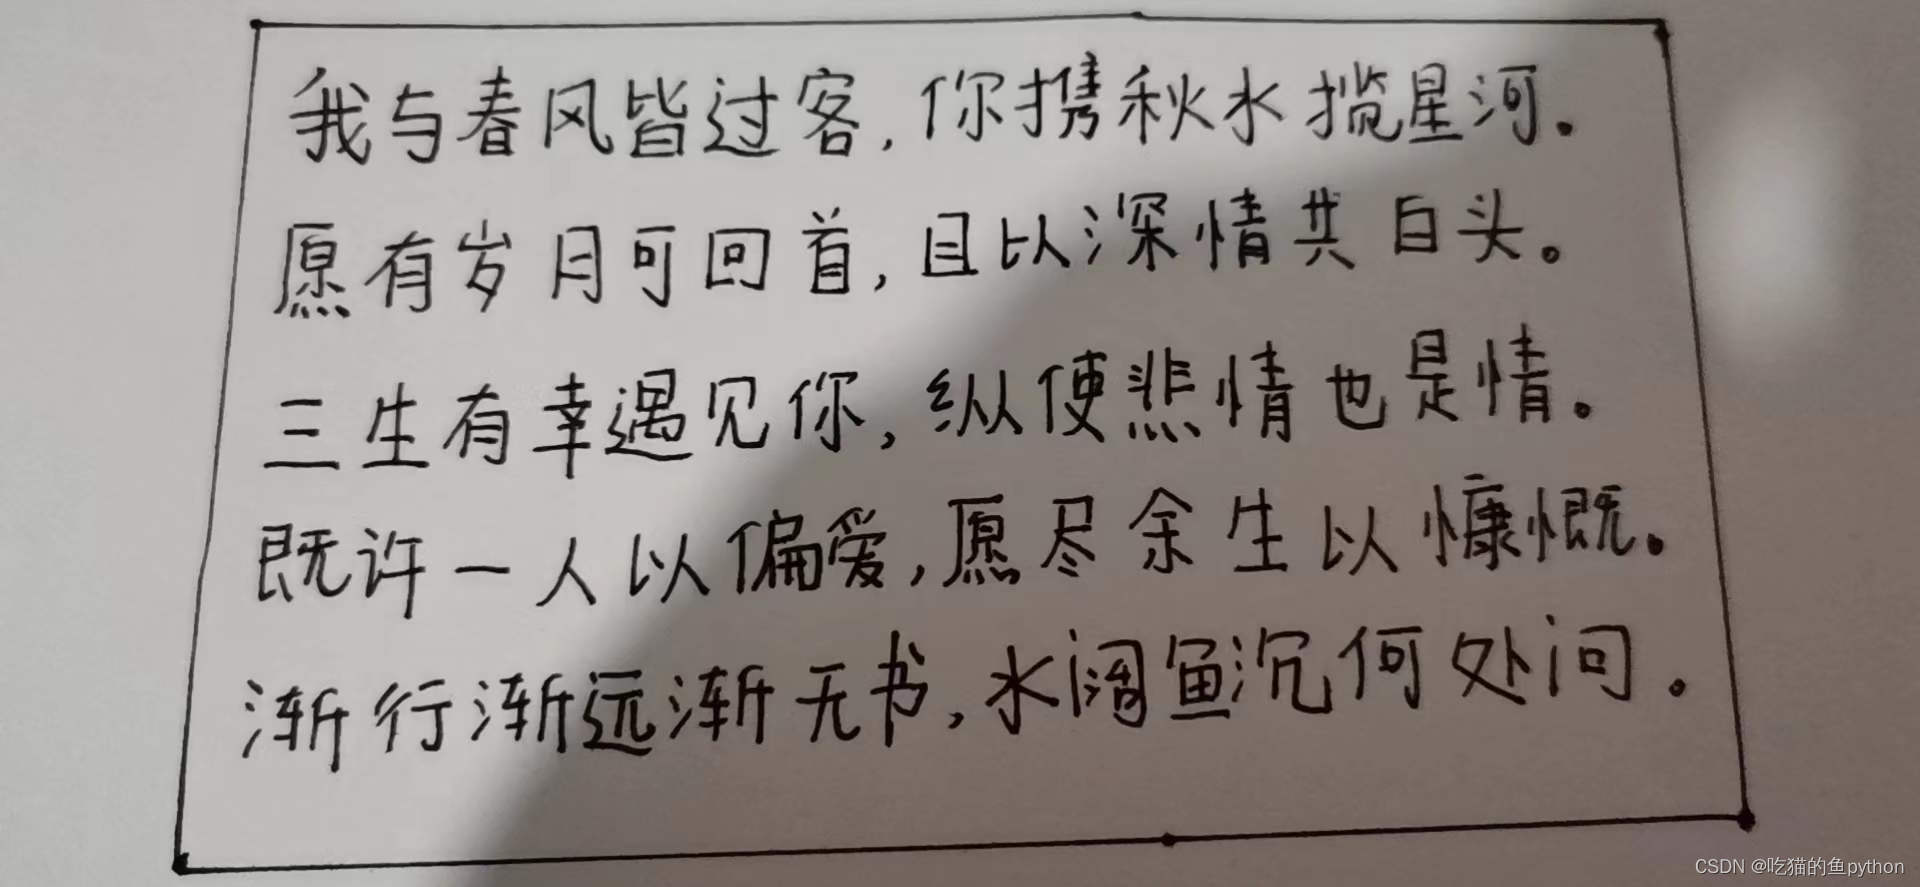 我与春风皆过客,你携秋水揽星河。
愿有岁月可回首,且以深情共白头。
三生有幸遇见你,纵使悲情也是情。
既许一人以偏爱,愿尽余生以慷慨。
渐行渐远渐无书,水阔鱼沉何处问。
CSDN @吃猫的鱼python